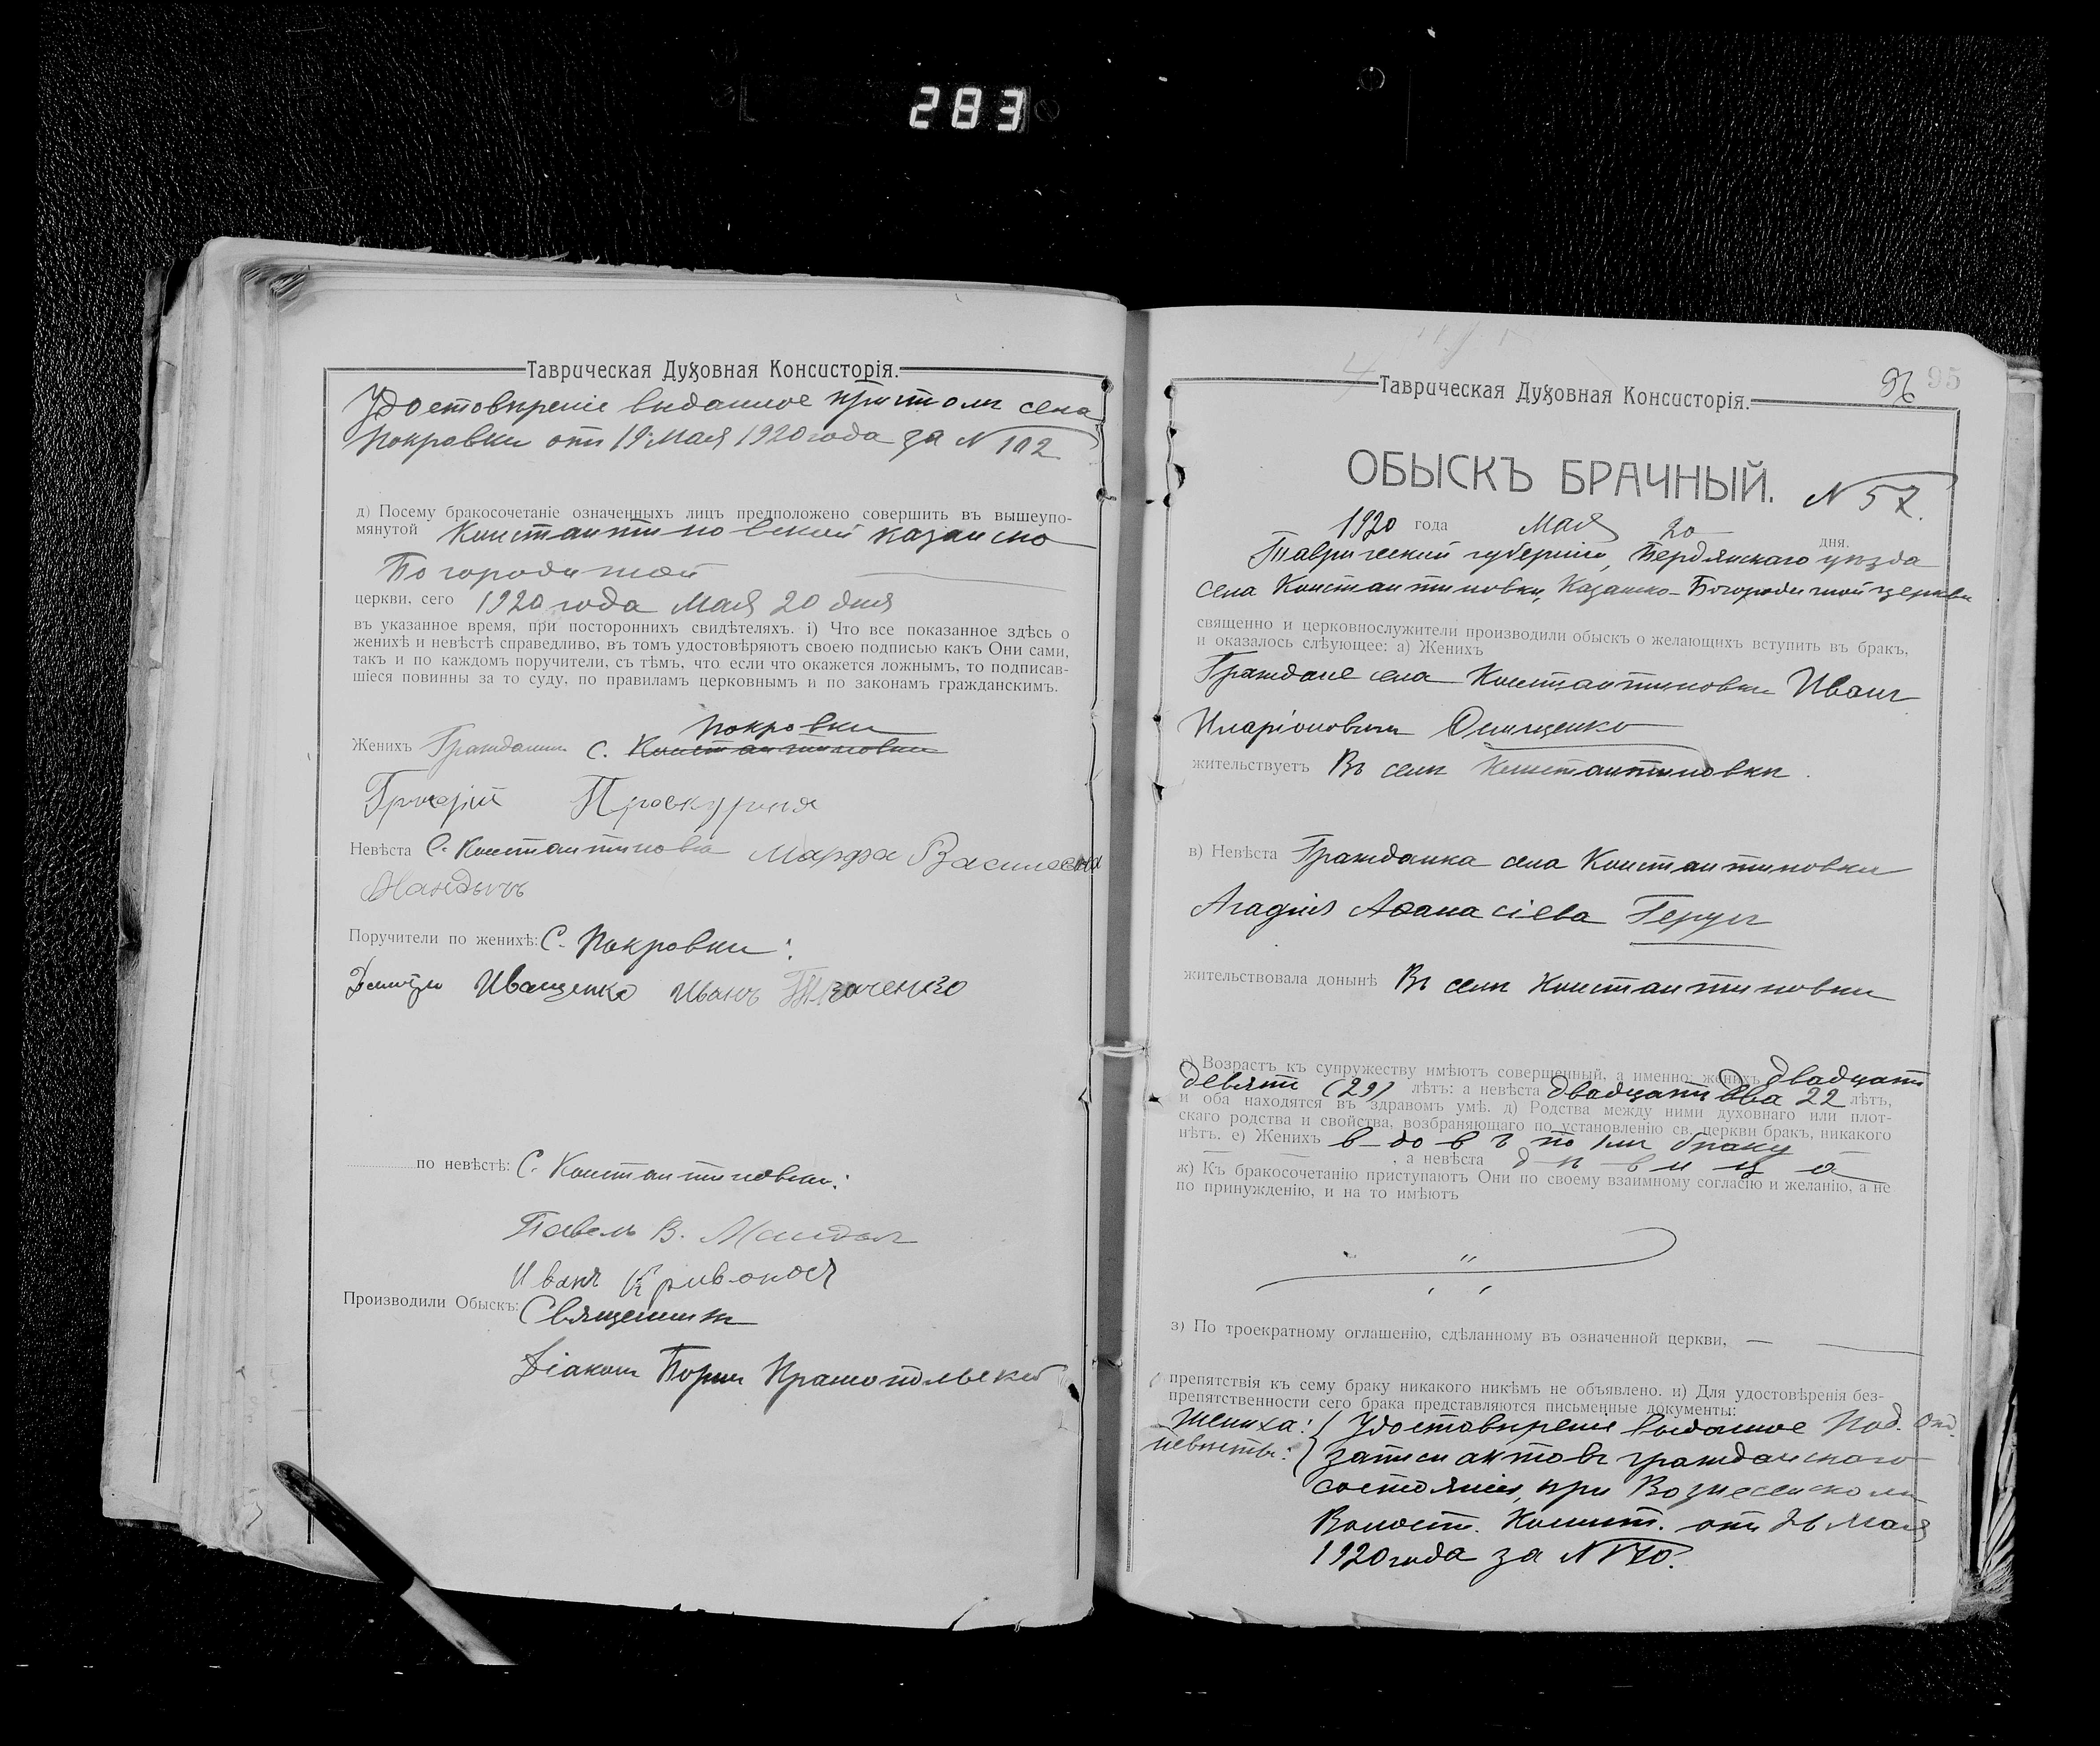 283
Таврическая Духовная Консисторія.
Удостовѣреніе выданное причтомъ села
Покровки отъ 19 Мая 1920 года за N 102
д) Посему бракосочетаніе означенныхъ лицъ предположено совершить въ вышеупо-
мянутой Константиновской Казанско
Богородичной
церкви, сего 1920 года Мая 20 дня
въ указанное время, при постороннихъ свидѣтеляхъ. i) Что все показанное здѣсь о
женихѣ и невѣстѣ справедливо, въ томъ удостовѣряютъ своею подписью какъ Они сами,
такъ и по каждомъ поручители, съ тѣмъ, что если что окажется ложнымъ, то подписав-
шіеся повинны за то суду, по правиламъ церковнымъ и по законамъ гражданскимъ.
Покровки
Женихъ Гражданинъ с. Константиновки
Григорій Проскурня
Невѣста С. Константиновки Марфа Васильева
Поручители по женихѣ: С. Покровки:
Иващенко Иванъ Ткаченко
по невѣстѣ: С. Константиновки:
Павелъ В.
Иванъ Кривонос
Производили Обыскъ: Священник
Діаконъ Борис
Таврическая Духовная Консисторія.
96 95
ОБЫСКЪ БРАЧНЫЙ. N 57.
1920 года Мая 20 дня.
Таврической губерніи, Бердянскаго уѣзда
села Константиновки, Казанско-Богородичной церкви
священно и церковнослужители производили обыскъ о желающихъ вступить въ бракъ,
и оказалось слѣующее: а) Женихъ
Граждане села Константиновки Иванъ
Иларіоновичъ Онищенко
жительствуетъ Въ селѣ Константиновки.
в) Невѣста Гражданка села Константиновки
Агафія Аѳанасіева
жительствовала донынѣ Въ селѣ Константиновки
г) Возрастъ къ супружеству имѣютъ совершенный, а именно: женихъ двадцати
девяти (29) лѣтъ: а невѣста двадцати два 22 лѣтъ,
и оба находятся въ здравомъ умѣ. д) Родства между ними духовнаго или плот-
скаго родства и свойства, возбраняющаго по установленію св. церкви бракъ, никакого
нѣтъ. е) Женихъ вдовъ по 1мъ браку
, а невѣста дѣвица
ж) Къ бракосочетанію приступаютъ Они по своему взаимному согласію и желанію, а не
по принужденію, и на то имѣютъ
з) По троекратному оглашенію, сдѣланному въ означенной церкви,
препятствія къ сему браку никакого никѣмъ не объявлено. и) Для удостовѣренія без-
препятственности сего брака представляются письменные документы:
Жениха: Удостовѣреніе выданное Под. Отд.
невѣсты: записи актовъ гражданскаго
состоянія, при Вознесенскомъ
Волост. Комит. отъ 26 Мая
1920 года за N